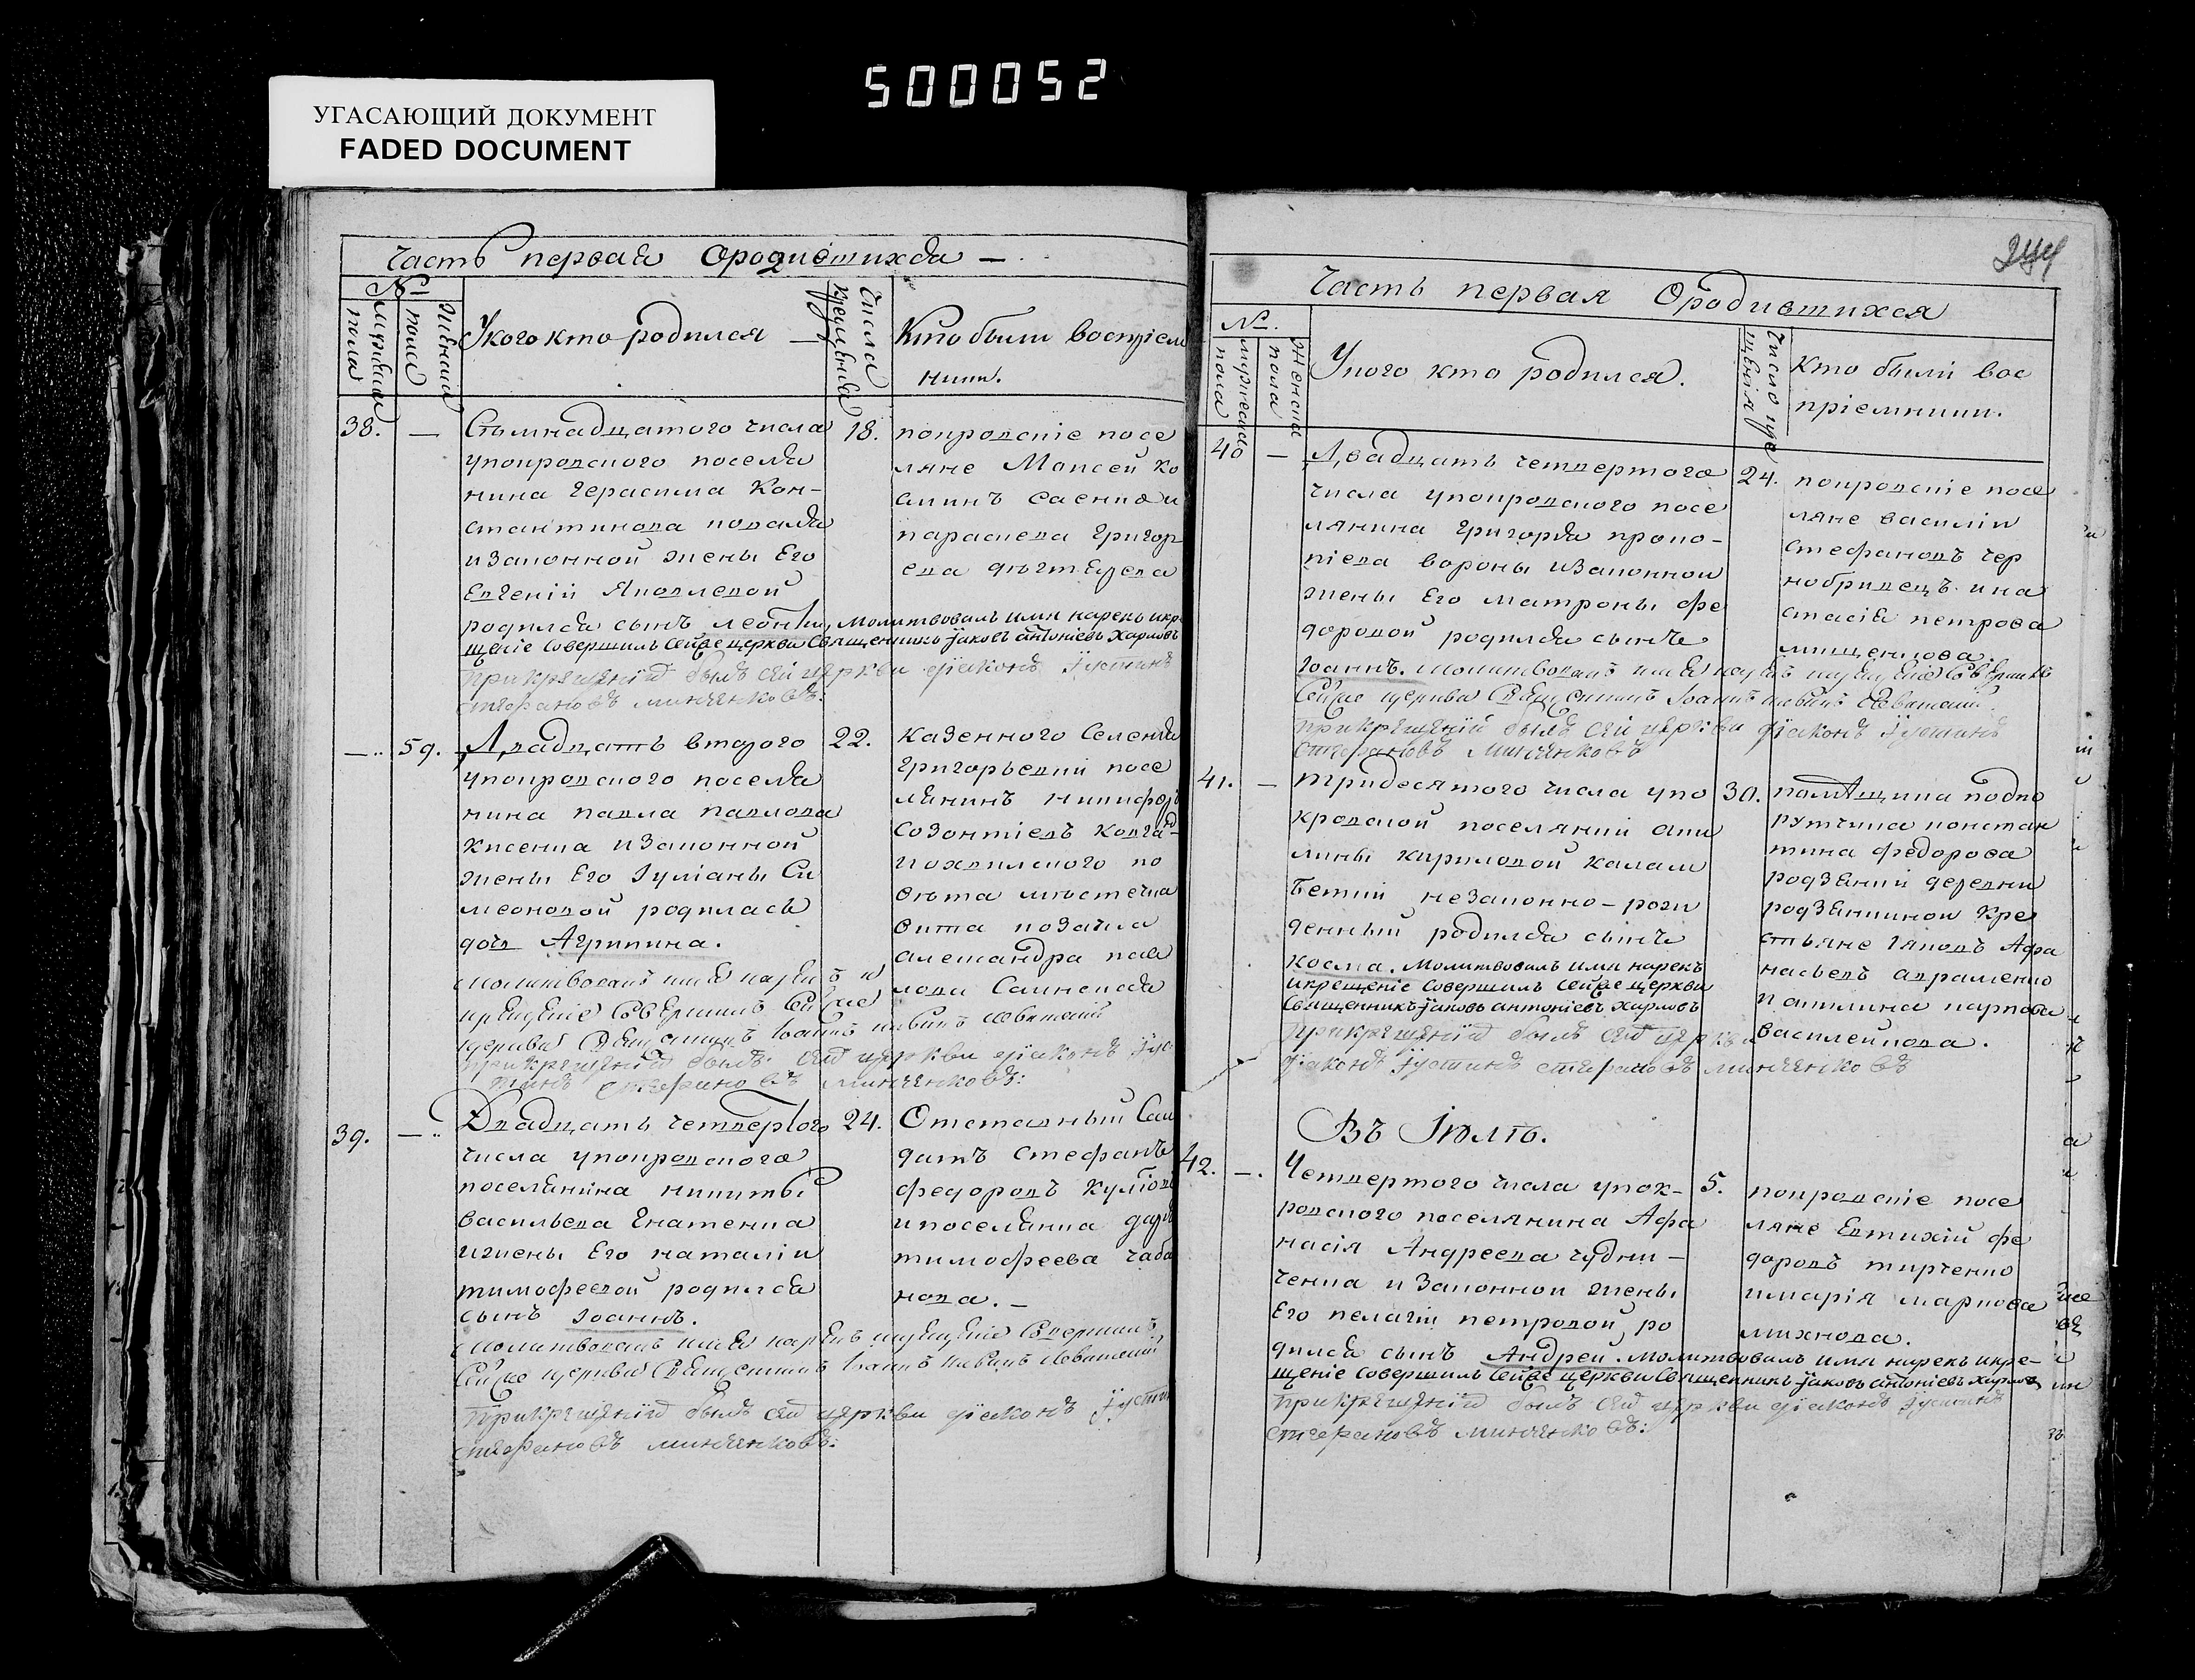 500052
УГАСАЮЩИЙ ДОКУМЕНТ
FADED DOCUMENT
Часть первая Ородившихся —
№
мужеска пола
женска пола
У кого кто родился —
Числа крещенія
Кто были воспріем
ники.
38. —
числа
упокровского поселя
нина Герасима Кон-
стантинова
изаконной жены Его
Евгеніи Яковлевой
родился сынъ Леонтій, молитвовалъ имя нарекъ икр
щеніе совершилъ сейже церкви Священникъ Іаковъ Антоніевъ Харловъ
При крещеніи былъ сей церкви діаконъ Іустинъ
Стефановъ Минченковъ.
18.
покровскіе посе
ляне Моисей
и
параскева Григор
ева
— 59.
Двадцать втораго
упокровского поселя
нина павла павлова
изаконной
жены Его Іуліаны Си
меоновой родилась
дочь Агрипина.
молитвовалъ имя нарекъ и
крещеніе совершилъ сейже
церкви Священникъ Іоаннъ
При крещеніи былъ сей церкви діаконъ Іус
тинъ Стефановъ Минченковъ:
22.
казенного Селенія
Григорьевки посе
лянинъ Никифоръ
Созонтіевъ
по
вѣта мѣстечка
козачка
александра пав
лова
39. —
Двадцать четвертого
числа упокровского
поселянина никиты
васильева Гнатенка
ижены Его наталіи
тимофеевой родился
сынъ Іоаннъ.
молитвовалъ имя нарекъ икрещеніе совершилъ
Сейже церкви Священникъ Іоаннъ
При крещеніи былъ сей церкви діаконъ Іусти
Стефановъ Минченковъ:
24.
Отставный Сол
датъ Стефанъ
федоровъ
ипоселянка дар
тимофеева чаба
нова. —
244
Часть первая Ородившихся
№.
мужеска пола
женска пола
У кого кто родился.
Число крещенія
Кто были вос
пріемники.
40 —
Двадцать четвертого
числа упокровского посе
лянина Григорія проко-
піева вороны изаконной
жены Его матроны фе
доровой родился сынъ
Іоаннъ. молитвовалъ имя нарекъ икрещеніе совершилъ
Сейже церкви Священникъ Іоаннъ
При крещеніи былъ сей церкви діаконъ Іустинъ
Стефановъ Минченковъ
24.
покровскіе посе
ляне василій
стефановъ чер
нобривецъ ина
стасія петрова
мищенкова.
41. —
тридесятого числа упо
кровской поселянки аки
лины кириловой калам
бетки незаконно-рож
денный родился сынъ
Косма. Молитвовалъ имя нарекъ
икрещеніе совершилъ сейже церкви
Священникъ Іаковъ Антоніевъ Харловъ
При крещеніи былъ сей церкви
діаконъ Іустинъ Стефановъ Минченковъ
30.
помѣщика подпо
рутчика констан
тина федорова
родзянки деревни
родзянкиной кре
стьяне Іаковъ Афа
насьевъ авраменко
и акилина карпова
василейкова.
Въ Іюлѣ.
42. —
Четвертого числа упок-
ровского поселянина Афа
насія Андреева чудни-
ченка изаконной жены
Его пелагіи петровой ро
дился сынъ Андрей. молитвовалъ имя нарекъ икре-
щеніе совершилъ сейже церкви Священникъ Іаковъ Антоніевъ Харловъ
При крещеніи былъ сей церкви діаконъ Іустинъ
Стефановъ Минченковъ:
5.
покровскіе посе
ляне Евтихій фе
доровъ тирченко
имарія маркова
михнова.